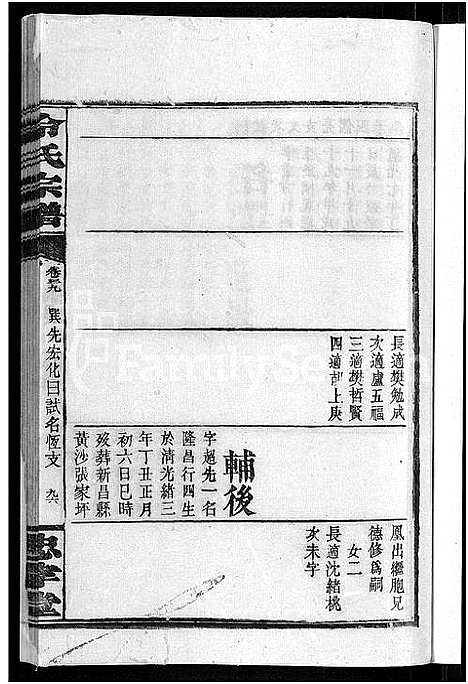 長適樊勉成
次適盧五福
三適樊哲賢
四適胡上庚
輔後
字超先一名
隆昌行四生
於清光緒三
年丁丑正月
初六日巳時
歿葬新昌縣
黃沙張家坪
鳳出繼胞兄
德修為嗣
女二
長適沈緒桃
次未字
冷氏宗譜
巽先宏化日試名恆支
忠孝堂